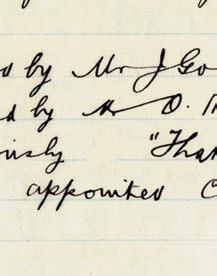 d by Mr J Go
d by Mr D.
ously "Than
appointed C